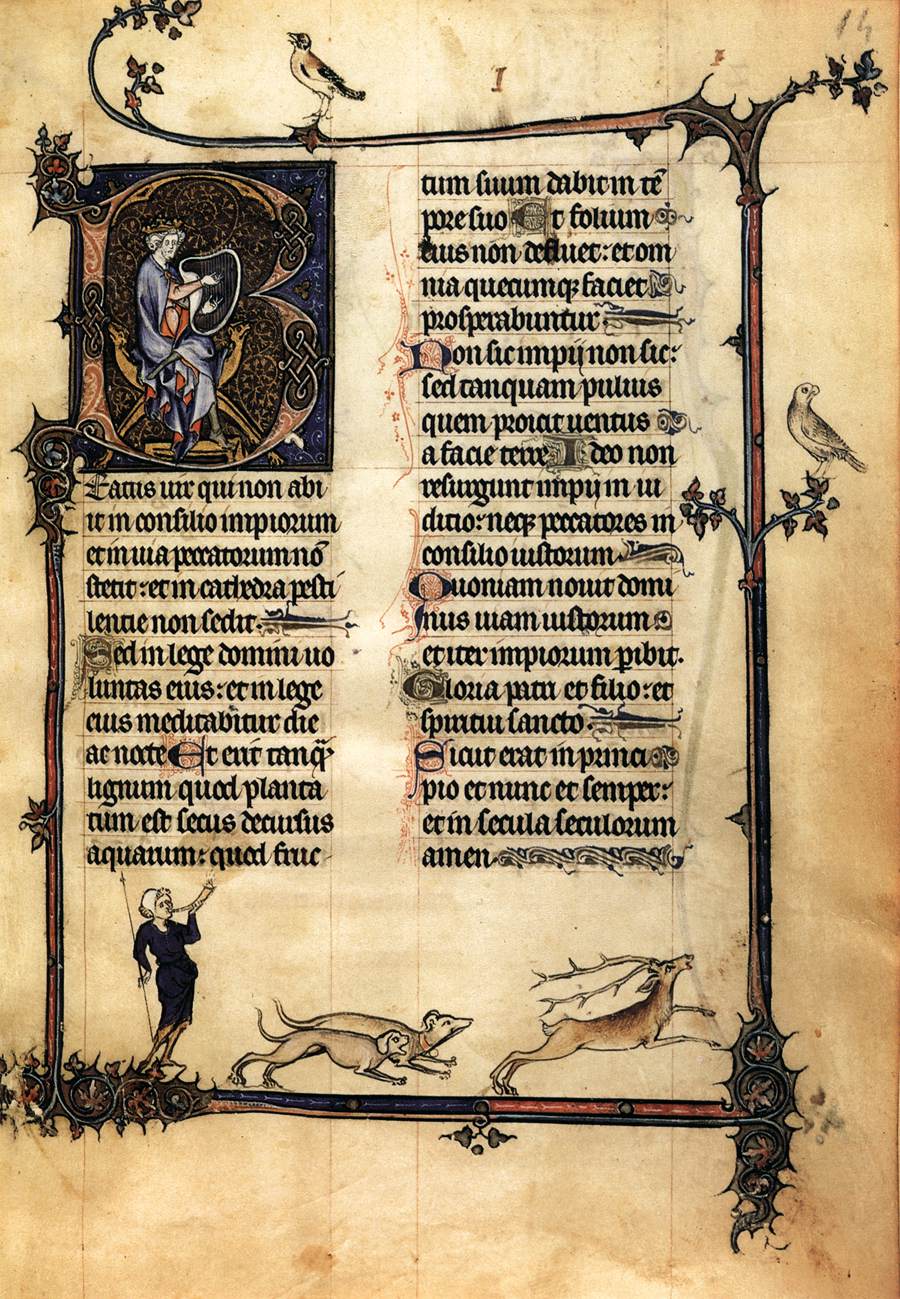 14
I
Beatus uir qui non abi
it in consilio impiorum
et in uia peccatorum nō
stetit: et in cathedra pesti
lentie non sedit.
Sed in lege domini uo
luntas eius: et in lege
eius meditabitur die
ac nocte Et erit tanq̄
lignum quod planta
tum est secus decursus
aquarum: quod fruc
tum suum dabit in tē
pore suo Et folium
eius non defluet: et om
nia quecumqꝫ faciet
prosperabuntur
Non sic impij non sic:
sed tanquam puluis
quem proicit uentus
a facie terre Ideo non
resurgunt impij in iu
ditio: neqꝫ peccatores in
consilio iustorum
Quoniam nouit domi
nus uiam iustorum
et iter impiorum ꝑibit.
Gloria patri et filio: et
spiritui sancto.
Sicut erat in princi
pio et nunc et semper:
et in secula seculorum
amen.